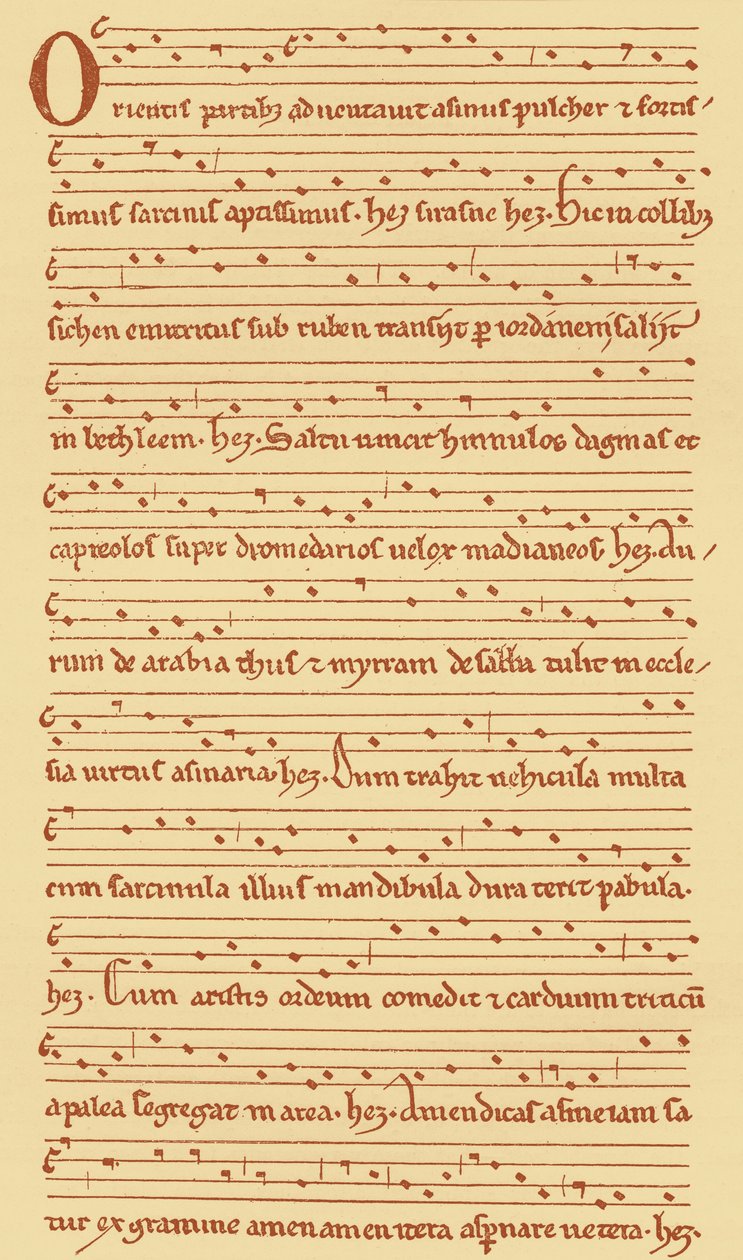 Orientis partibꝫ adventavit asinus pulcher ⁊ fortis/
simus sarcinis aptissimus. heƷ sirasne heƷ. Hic in collibꝫ
sichen enutritus sub ruben transijt ꝑ iordanem salijt
in bethleem. heƷ. Saltu vincit hinnulos dagmas et
capreolos super dromedarios velox madianeos. heƷ. Au/
rum de arabia thus ⁊ myrram de sabba tulit in eccle/
sia virtus asinaria. heƷ. Dum trahit vehicula multa
cum sarcinula illius mandibula dura terit pabula.
heƷ. Cum aristis ordeum comedit ⁊ carduum triticū
a palea segregat in area. heƷ. Amen dicas asine iam sa
tur ex gramine amen amen itera asꝑnare vetera. heƷ.